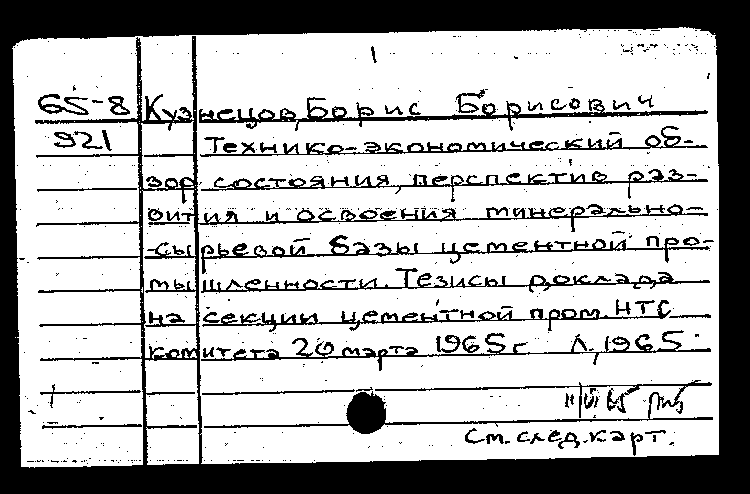 1
65-8 Кузнецов, Борис Борисович
921 Технико-экономический об-
зор состояния, перспектив раз-
вития и освоения минерально-
-сырьевой базы цементной про-
мышленности. Тезисы доклада
на секции цементной пром. НТС
комитета 20 марта 1965 г Л., 1965
См. след. карт.